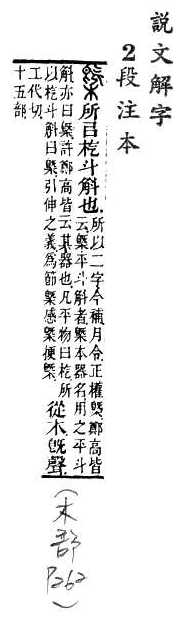 說文解字
2段注本
槩所㠯杚斗斛也
所以二字今補月令正權槩鄭高皆
云槩平斗斛者槩本器名用之平斗
斛亦曰槩許鄭高皆云其器也凡平物曰杚所
以杚斗斛曰槩引伸之義爲節槩感槩挭槩
從木旣聲
工代切
十五部
(木部P262)